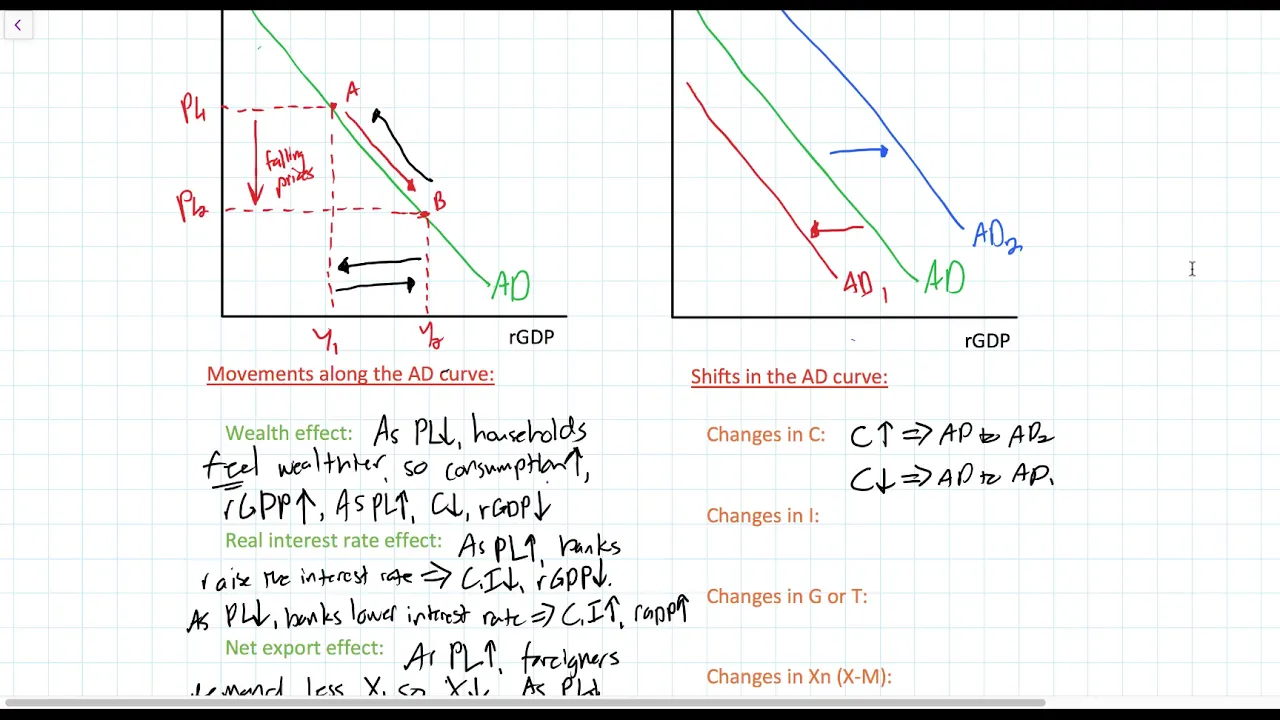 PL1
A
falling
prices
PL2
B
AD
Y1
Y2
rGDP
AD2
AD
AD1
rGDP
Movements along the AD curve:
Wealth effect: As PL↓, households
feel wealthier, so consumption↑,
rGDP↑, As PL↑, C↓, rGDP↓
Real interest rate effect: As PL↑, banks
raise the interest rate ⇒ C,I↓, rGDP↓.
As PL↓, banks lower interest rate ⇒ C,I↑, rGDP↑
Net export effect: As PL↑, foreigners
demand less X, so X↓. As PL↓
Shifts in the AD curve:
Changes in C: C↑ ⇒ AD to AD2
C↓ ⇒ AD to AD1
Changes in I:
Changes in G or T:
Changes in Xn (X-M):